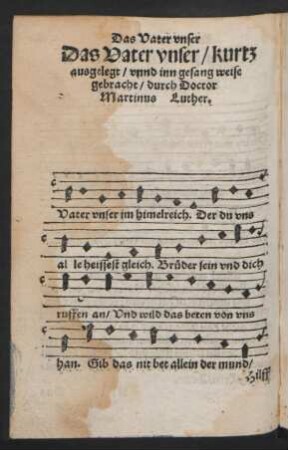 Das Vater vnser
Das Vater vnser / kurtz
ausgelegt / vnnd inn gesang weise
gebracht / durch Doctor
Martinus Luther.
Vater vnser im himelreich. Der du vns
al le heissest gleich. Brüder sein vnd dich
ruffen an / Vnd wild das beten von vns
han. Gib das nit bet allein der mund /
Hilff